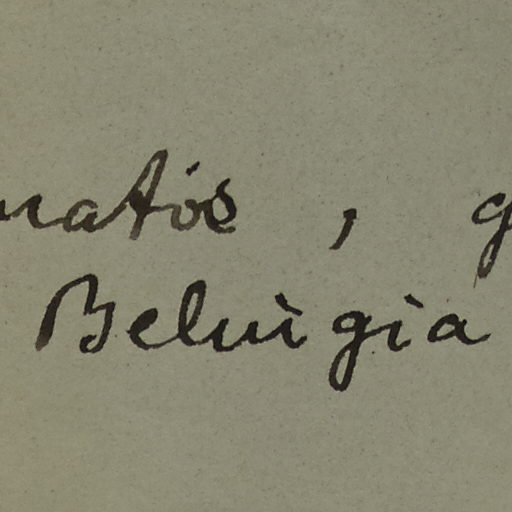 natos , g
Beluigia